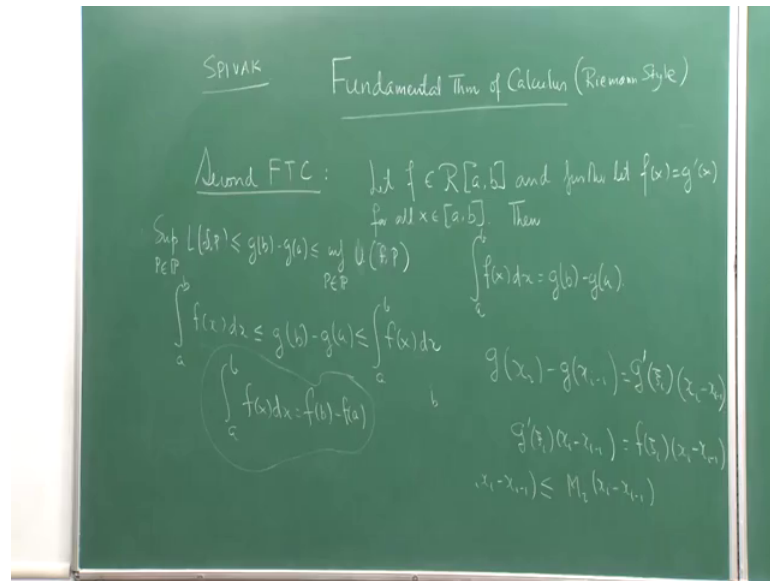 SPIVAK
Fundamental Thm of Calculus (Riemann Style)
Second FTC: Let f ∈ R[a,b] and further let f(x)=g'(x)
for all x ∈ [a,b]. Then
∫_a^b f(x)dx = g(b)-g(a).
Sup_{P∈ℙ} L(f,P) ≤ g(b)-g(a) ≤ inf_{P∈ℙ} U(f,P)
∫_a^b f(x)dx ≤ g(b)-g(a) ≤ ∫_a^b f(x)dx
∫_a^b f(x)dx = f(b)-f(a)
b
g(x_i)-g(x_{i-1}) = g'(ξ_i)(x_i-x_{i-1})
g'(ξ_i)(x_i-x_{i-1}) = f(ξ_i)(x_i-x_{i-1})
x_i-x_{i-1}) ≤ M_i(x_i-x_{i-1})